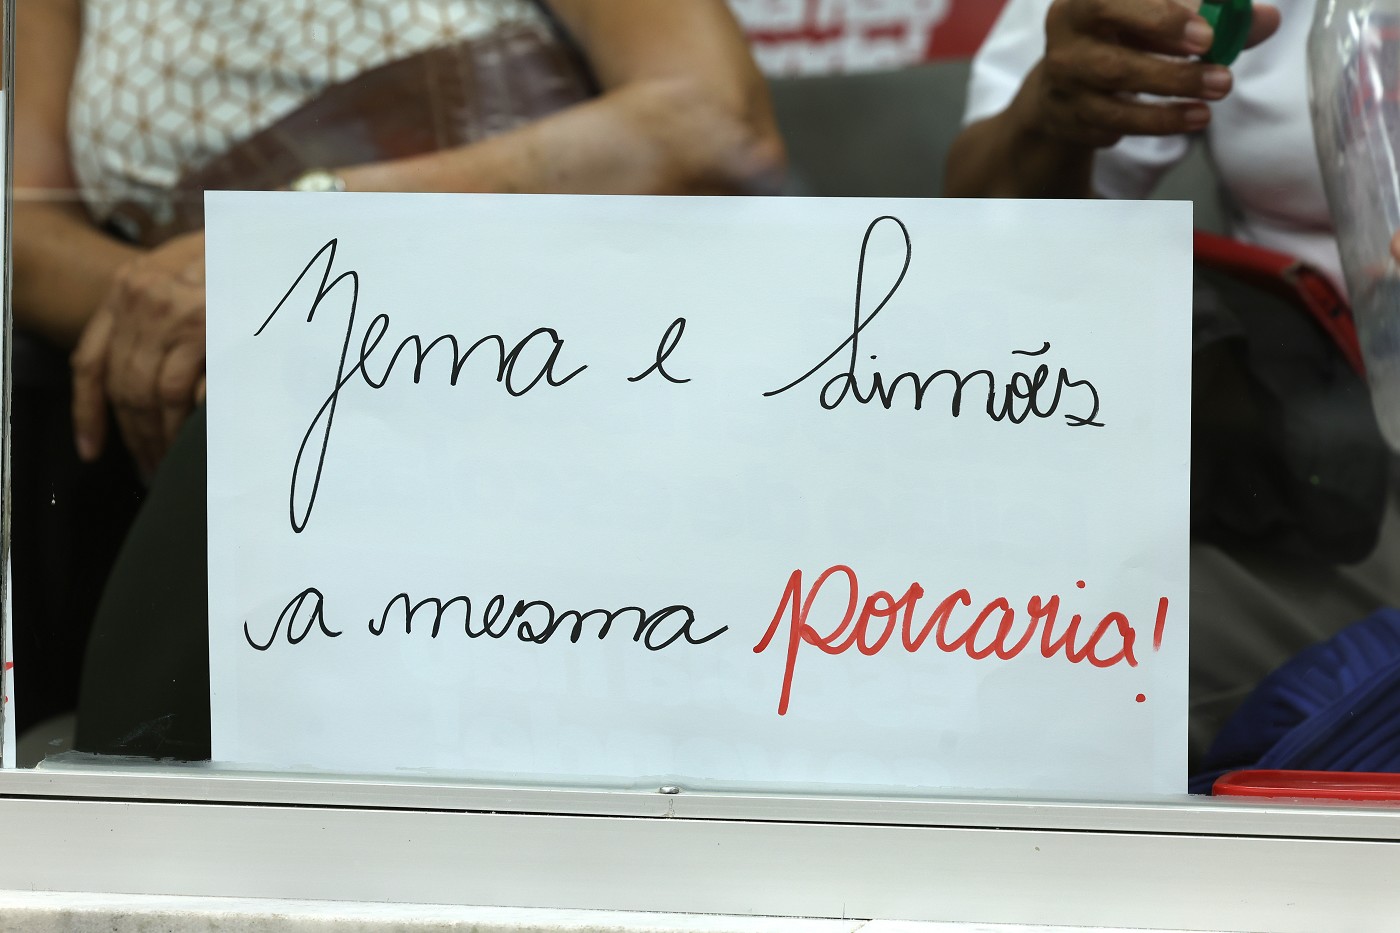 Zema e Simões
a mesma porcaria!